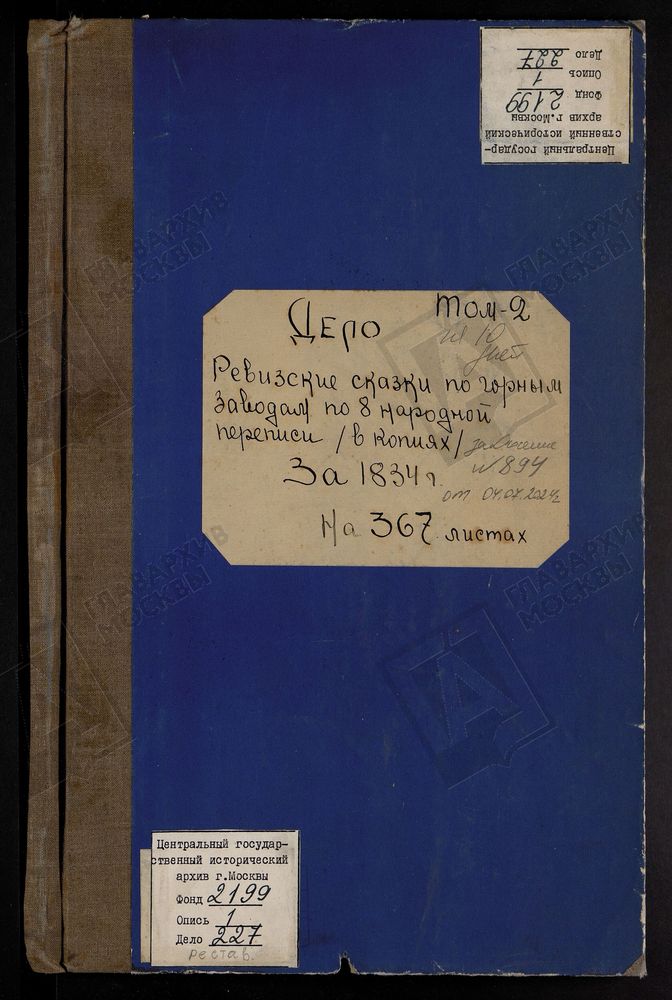 Центральный государ-
ственный исторический
архив г.Москвы
Фонд 2199
Опись 1
Дело 227
Дело
Том-2
на 10
дней
Ревизские сказки по горным
заводам по 8 народной
переписи /в копиях/
заключение
№ 894
За 1834 г.
от 04.07.2024г
На 367 листах
Центральный государ-
ственный исторический
архив г.Москвы
Фонд 2199
Опись 1
Дело 227
рестав.
ГЛАВАРХИВ
МОСКВЫ
ГЛАВАРХИВ
МОСКВЫ
ГЛАВАРХИВ
МОСКВЫ
ГЛАВАРХИВ
МОСКВЫ